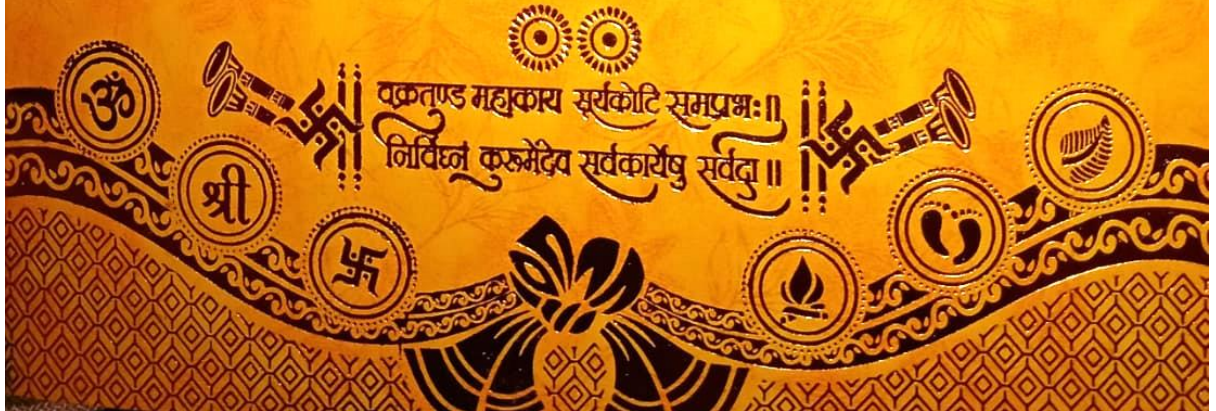 वक्रतुण्ड महाकाय सूर्यकोटि समप्रभः॥
निर्विघ्नं कुरूमेदेव सर्वकार्येषु सर्वदा॥
ॐ
श्री